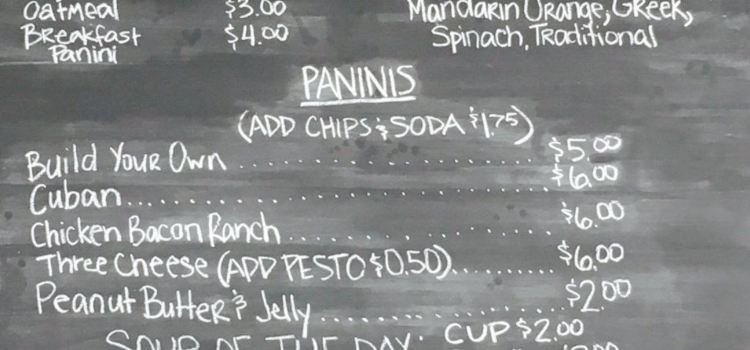 Oatmeal $3.00
Breakfast $4.00
Panini
Mandarin Orange, Greek,
Spinach, Traditional
PANINIS
(ADD CHIPS & SODA $1.75)
Build Your Own .......................... $5.00
Cuban .......................... $6.00
Chicken Bacon Ranch .................. $6.00
Three Cheese (ADD PESTO $0.50) .......... $6.00
Peanut Butter & Jelly .................. $2.00
SOUP OF THE DAY: CUP $2.00